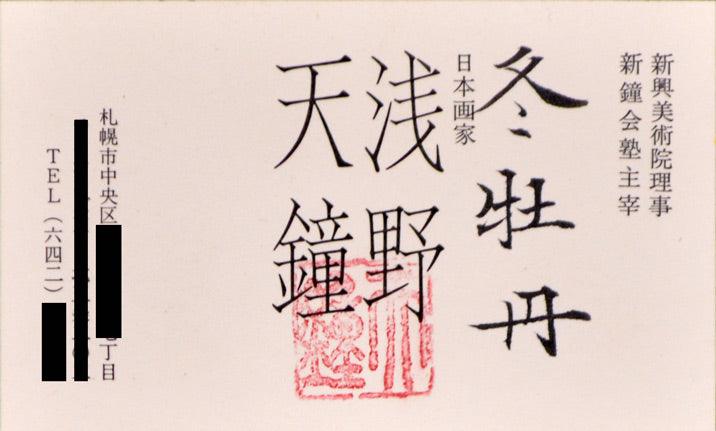 新興美術院理事
新鐘会塾主宰
冬牡丹
日本画家
浅野
天鐘
札幌市中央区
丁目
TEL(六四二)